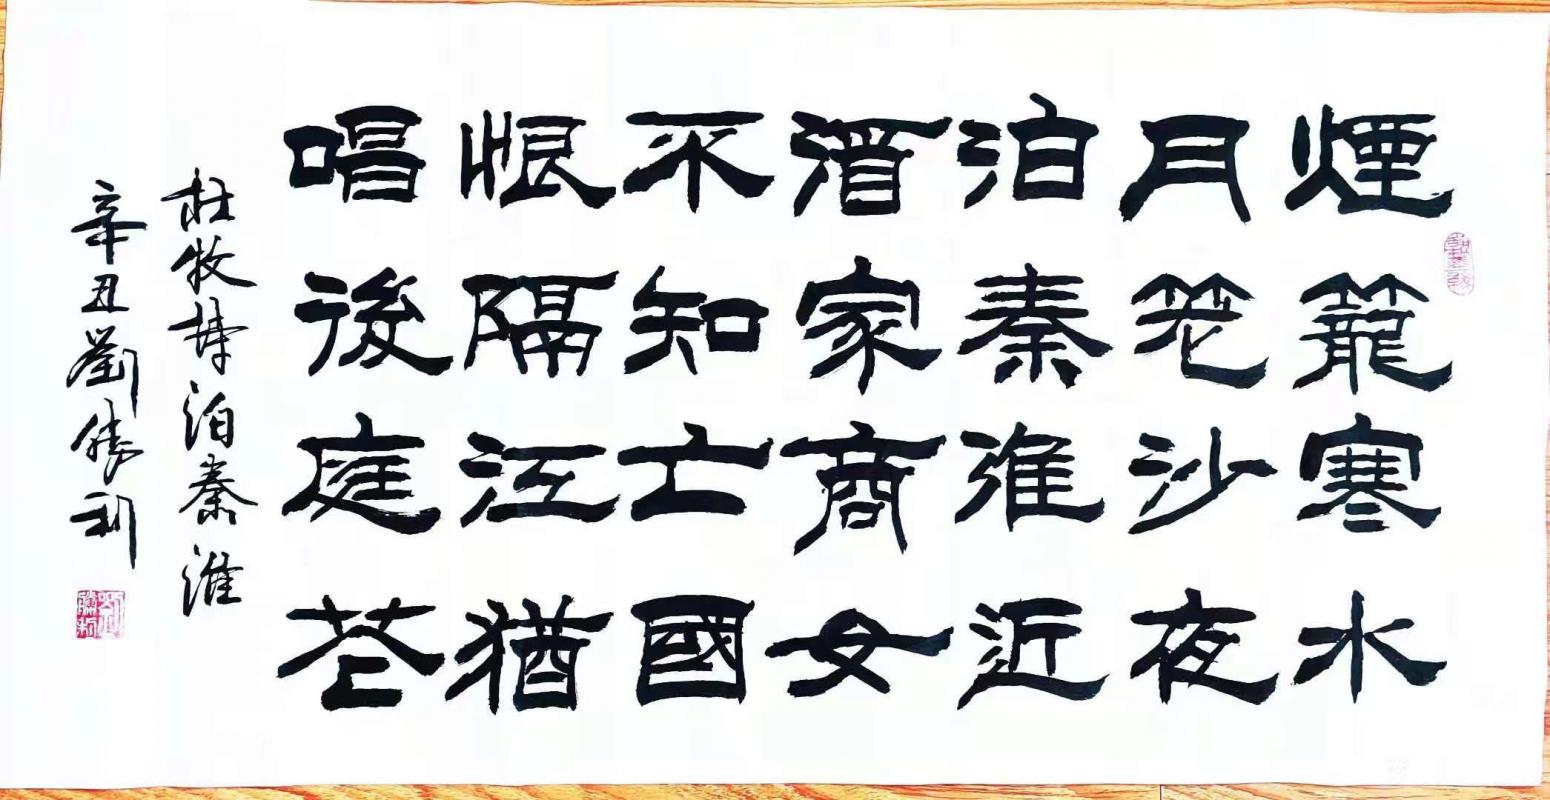 煙籠寒水
月笼沙夜
泊秦淮近
酒家商女
不知亡國
恨隔江猶
唱後庭花
杜牧詩泊秦淮
辛丑劉勝利
劉勝利